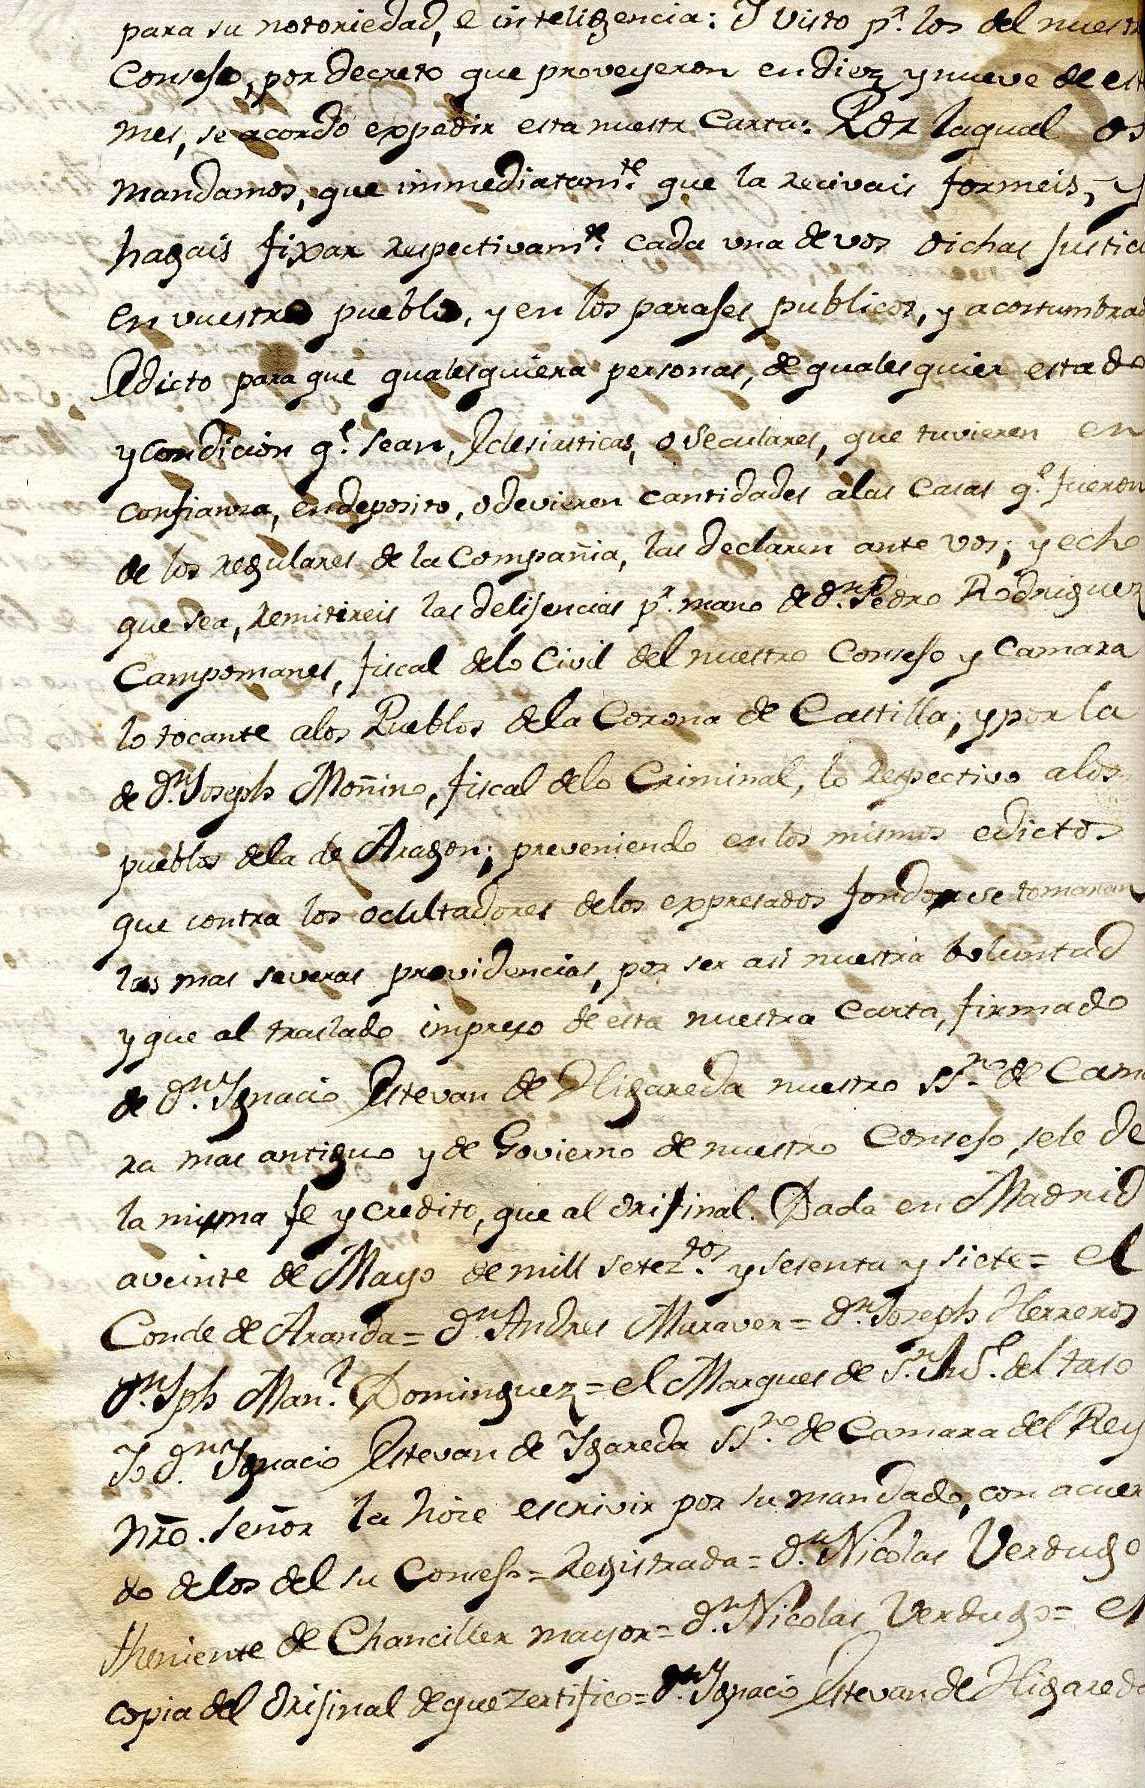 para su notoriedad, e inteligencia: Y visto pr. los del nuestr
Consejo, por decreto que proveyeron en diez y nueve de est
mes, se acordó expedir esta nuestr Carta: Por laqual os
mandamos, que immediatamte. que la recivais formeis, y
hagais fixar respectivamte. cada una de vos dichas Justici
en vuestro pueblo, y en los parajes publicos, y acostumbrad
Edicto para que qualesquiera personas, de qualesquier estado
y condicion qe. sean, Eclesiasticas, o Seculares, que tuvieren en
confianza, en deposito, o devieren cantidades alas Casas qe. fueron
de los regulares de la Compañia, las declaren ante vos; y echo
que sea, remitireis las delijencias pr. mano de dn. Pedro Rodriguez
Campomanes, fiscal delo Civil del nuestro Consejo y Camara
lo tocante alos Pueblos dela Corona de Castilla; y por la
de dn. Joseph Moñino, fiscal delo Criminal, lo respectivo alos
pueblos dela de Aragon; preveniendo en los mismos edictos
que contra los ocultadores delos expresados fondos se tomaran
las mas severas providencias, por ser asi nuestra boluntad
y que al traslado impreso de esta nuestra Carta, firmado
de dn. Ygnacio Estevan de Higareda nuestro SSno. de Cama
ra mas antiguo y de Govierno de nuestro Consejo, se le de
la misma fe y credito, que al orijinal. Dada en Madrid
a veinte de Mayo de mill seteztos. y sesenta y siete = el
Conde de Aranda = dn. Andres Maraver = dn. Joseph Herreros
dn. Jph Manl. Dominguez = el Marques de Sn. Jun. del taso
Yo dn. Ygnacio Estevan de Ygareda SSno. de Camara del Rey
nro. Señor la hice escrivir por su mandado, con acuer
do delos del su Consejo = Registrada = dn. Nicolas Verdugo
theniente de Chanciller mayor = dn. Nicolas Verdugo = es
copia del Orijinal de que zertifico = dn. Ygnacio Estevan de Higareda